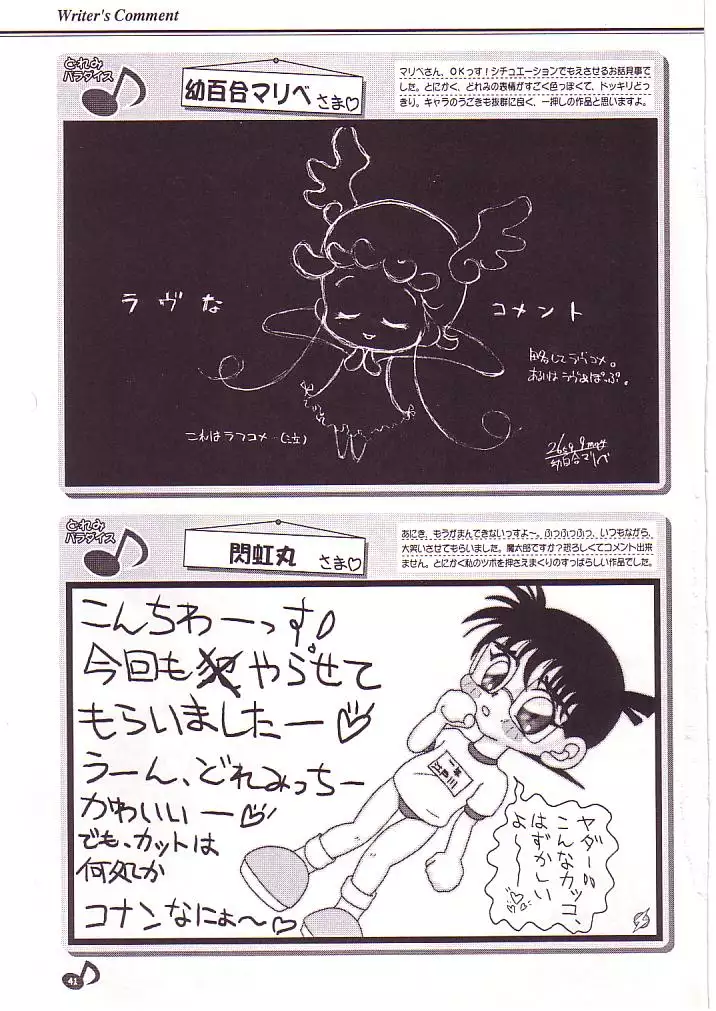 Writer's Comment
どれみ
パラダイス
幼百合マリベ さま♡
マリベさん、OKっす！シチュエーションでもえさせるお話見事で
した。とにかく、どれみの表情がすごく色っぽくて、ドッキリどっ
きり。キャラのうごきも抜群に良く、一押しの作品と思いますよ。
ラヴな
コメント
略してラヴコメ。
あるいはラヴあぽっぷ。
これはラフコメ…(泣)
幼百合マリベ
どれみ
パラダイス
閃虹丸 さま♡
あにき、もうがまんできないっすよ〜。ふっふっふっ、いつもながら、
大笑いさせてもらいました。魔太郎ですか？恐ろしくてコメント出来
ません。とにかく私のツボを押さえまくりのすっばらしい作品でした。
こんちわーっす!
今回も やらせて
もらいましたー♡
うーん、どれみっちー
かわいいー♡
でも、カットは
何処か
コナンなにぉ〜♡
一年
江戸川
ヤダー!!
こんなカッコ、
はずかしい
よ〜〜♡
41